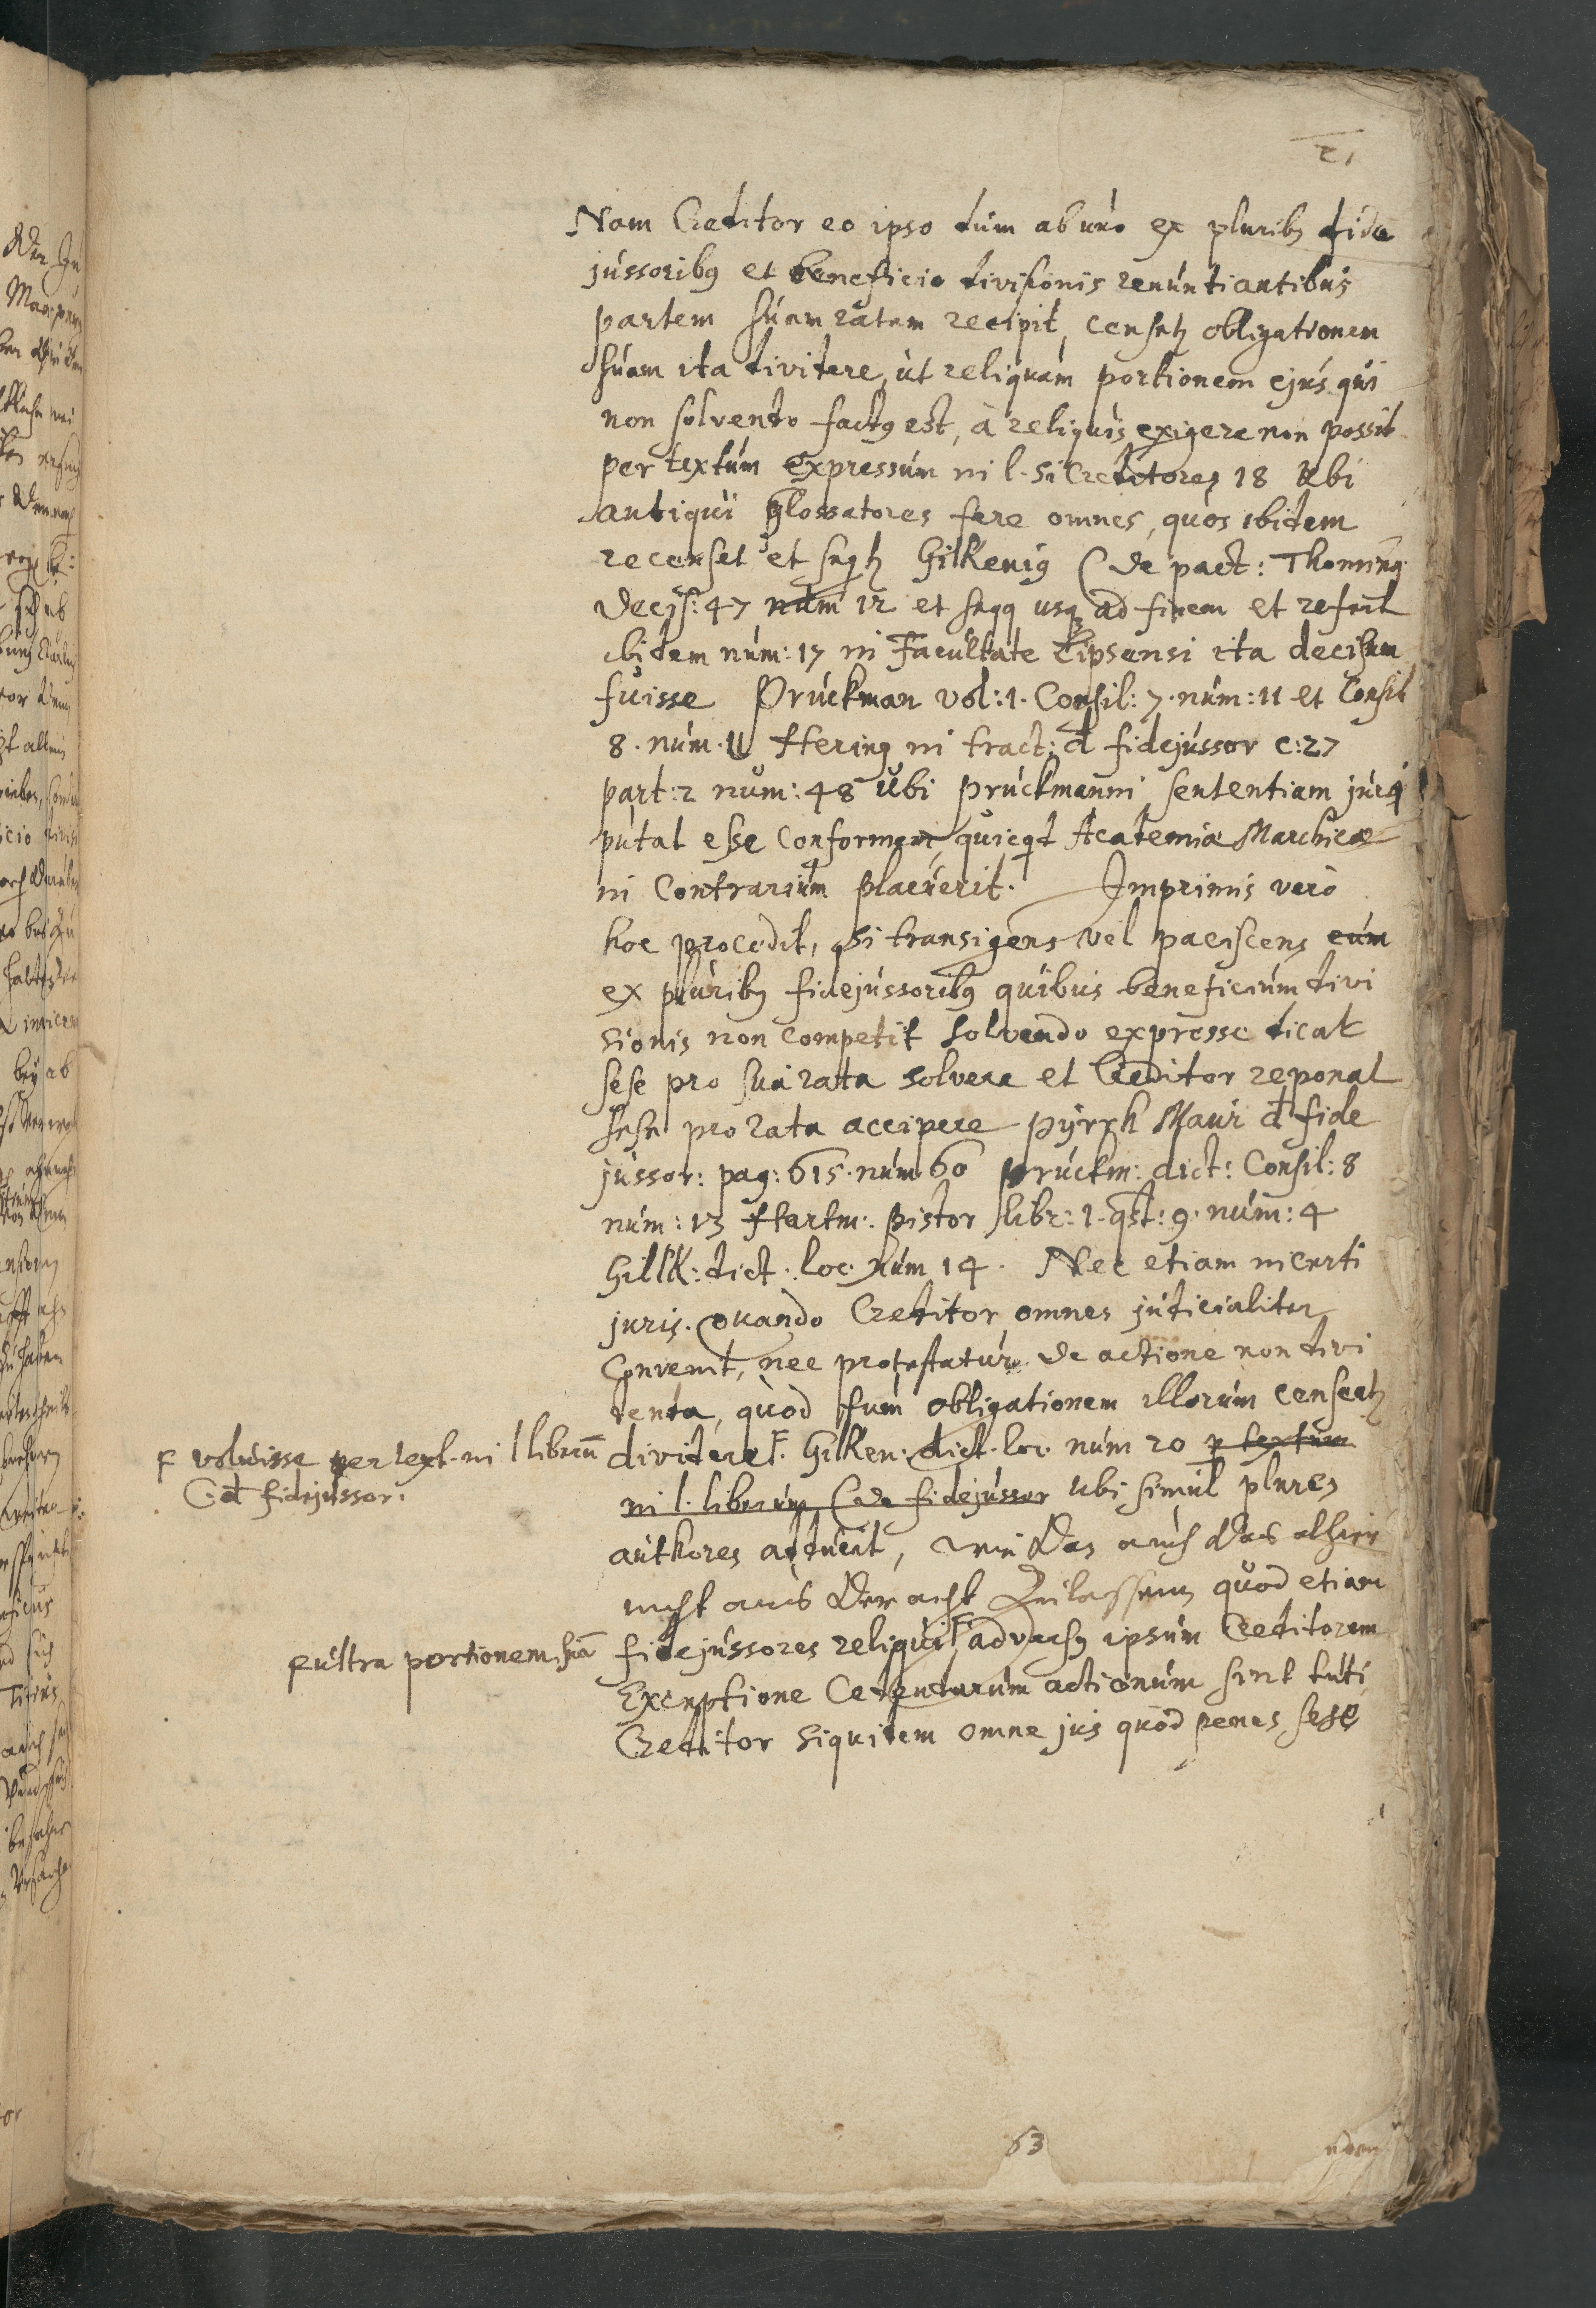 21
Nam Creditor eo ipso dum ab uno ex pluribꝰ fide
jussoribꝰ et beneficio divisionis renuntiantibus
partem suam ratam recipit, censetꝛ obligationem
suam ita dividere, ut reliquam portionem ejus qui
non solvendo factꝰ est, à reliquis exigere non possit
per textum expressum in l. si Creditores 18 ubi
antiqui glossatores fere omnes, quos ibidem
recenset et seqtꝛ Gilkenig C de pact: Thoming
Decis: 47 num 12 et seqq usqꝫ ad finem et refert
ibidem num: 17 in Facultate Lipsensi ita decisum
fuisse Pruckman vol: 1. Consil: 7. num: 11 et Consil
8. num. 11 Hering in tract: d fidejussor c: 27
part: 2 num: 48 Ubi Pruckmanni sententiam juri
putat esse conformem, quicqd Academiæ Marchicæ
in contrarium placuerit. Imprimis vero
hoc procedit, si transigens vel paciscens cum
ex pluribꝰ fidejussoribꝰ quibus beneficium divi
sionis non competit solvendo expresse dicat
sese pro sua rata solvere et Creditor reponat
sese pro rata accipere Pyrrh Maur d fide
jussor: pag: 615. num 60 Pruckm: dict: Consil: 8
num: 13 Hartm: Pistor libr: 1. qst: 9. num: 4
Gilk: dict. loc. num 14. Nec etiam incerti
juris. quando Creditor omnes judicialiter
convenit, nec protestatur de actione non divi
denda, quod tum obligationem illorum censeatꝛ
dividere F. Gilken: dict. loc. num 20 p textum
in l. liberum C de fidejussor ubi simul plures
authores adducit,
nicht aus der acht Zulassen, quod etiam
fidejussores reliqui F adversꝰ ipsum Creditorem
Exceptione Cedendarum actionum sint tuti,
Creditor siquidem omne jus quod penes sese
F voluisse per text. in l liberum
C. d fidejussor.
F ultra portionem suā
63